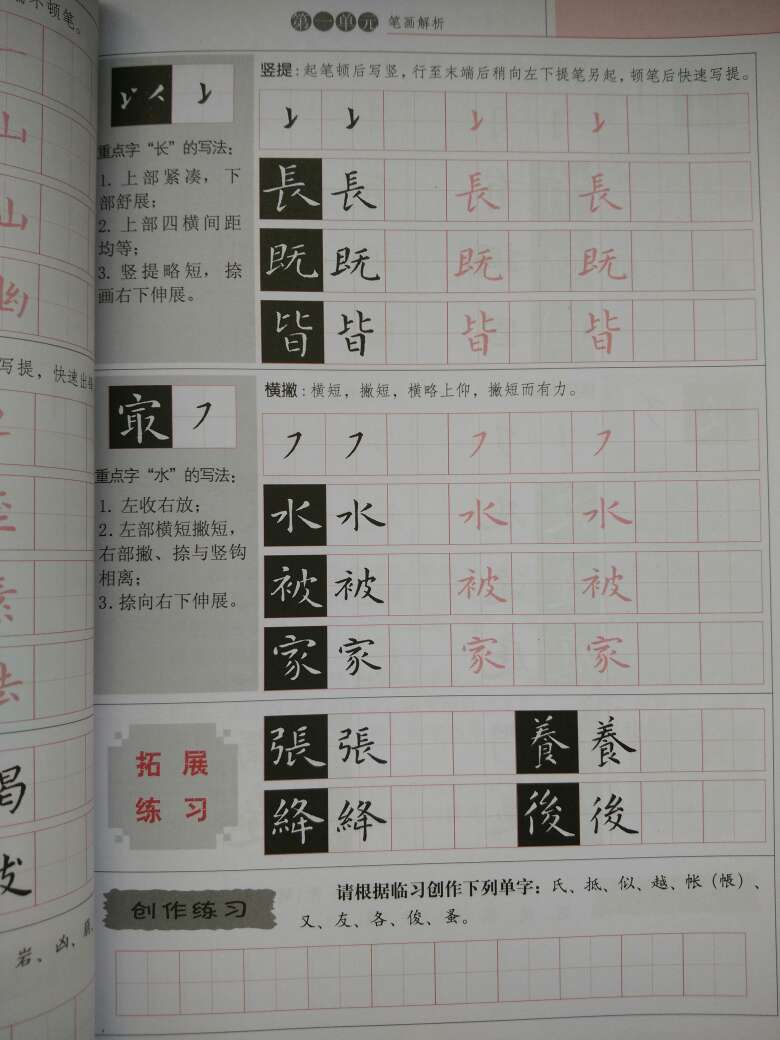 不顿笔。
山
山
幽
写提，快速出
素
法
第一单元 笔画解析
竖提：起笔顿后写竖，行至末端后稍向左下提笔另起，顿笔后快速写提。
以
重点字“长”的写法：
1. 上部紧凑，下
部舒展；
2. 上部四横间距
均等；
3. 竖提略短，捺
画右下伸展。
長 長 長 長
既 既 既 既
皆 皆 皆 皆
横撇：横短，撇短，横略上仰，撇短而有力。
重点字“水”的写法：
1. 左收右放；
2. 左部横短撇短，
右部撇、捺与竖钩
相离；
3. 捺向右下伸展。
水 水 水 水
被 被 被 被
家 家 家 家
拓展
练习
張 張 養 養
絳 絳 後 後
创作练习
请根据临习创作下列单字：氏、抵、似、越、帐（帳）、
又、友、各、俊、蚤。
岩、凶、